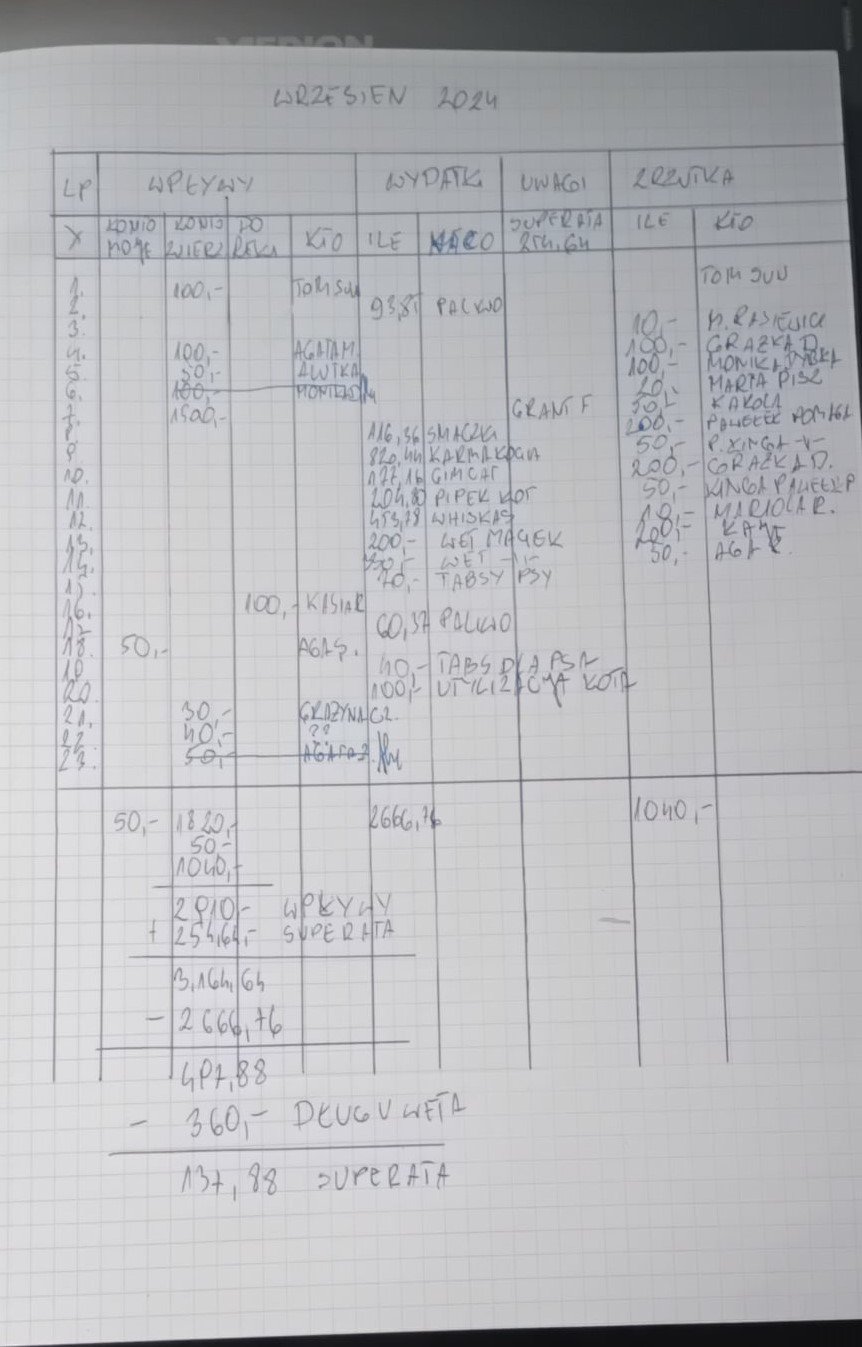 WRZESIEŃ 2024
LP WPŁYWY WYDATKI UWAGI ZRZUTKA
X KONTO MOJE KONTO WIER DO RĘKI KTO ILE NA CO SUPERATA 254,64 ILE KTO
1. 100,- TOM SUU TOM SUU
2. 93,85 PALIWO
3. 10,-
4. 100,- AGATA M. 100,- GRAŻKA D.
5. 50,- ALUTKA 100,- MONIKA
6. 100,- 20,- MARTA PISZ
7. 1500,- GRANT F 50,- KAROLA
8. 116,36 SMACZKI 200,- PAWEŁEK POMAGA
9. 820,44 KARMA KOCIA 50,- P. KINGA -"-
10. 177,16 GIMCAT 200,- GRAŻKA D.
11. 204,80 PIPEK KOT 50,- KINGA PAWEŁKP
12. 453,78 WHISKAS 10,- MARIOLA R.
13. 200,- WET MACIEK 200,-
14. WET -"- 50,- AGA
15. 20,- TABSY PSY
16. 100,- KASIA R
17. 60,37 PALIWO
18. 50,- AGA Ş.
19 40,- TABS DLA PSA
20. 100,- UTYLIZACJA KOTA
21. 30,- GRAŻYNA CZ.
22 40,- ??
23. 50,-
50,- 1820,- 2666,76 1040,-
50-
1040,-
2910,- WPŁYWY
+ 254,64,- SUPERATA
3,164,64
- 2666,76
497,88
- 360,- DŁUG U WETA
137,88 SUPERATA